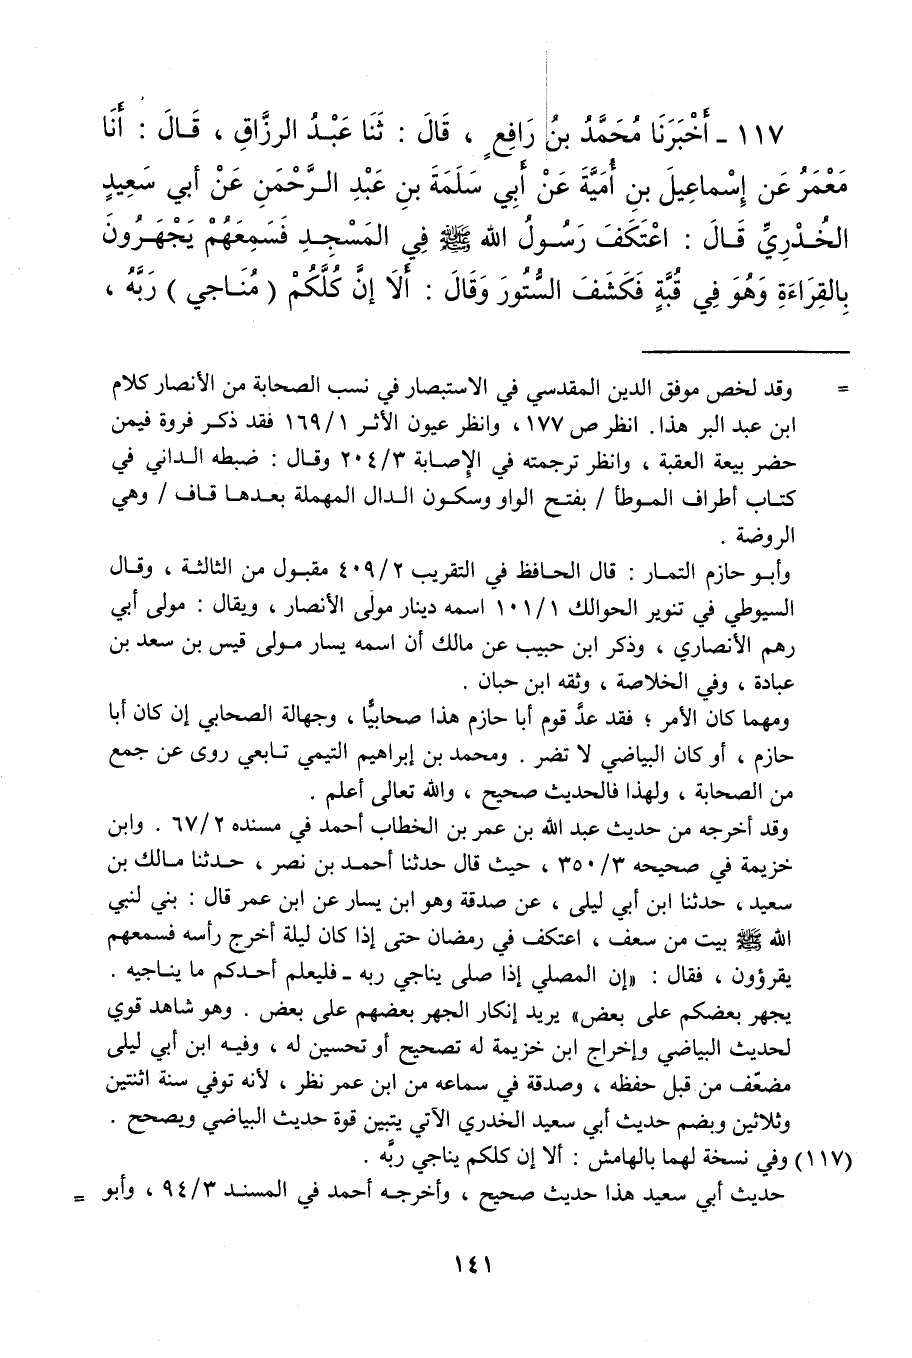 ١١٧ ـ أَخْبَرَنَا مُحَمَّدُ بنُ رَافِعٍ ، قَالَ : ثَنَا عَبْدُ الرزَّاقِ ، قَالَ : أَنَا
مَعْمَرُ عَن إِسْماعِيلَ بنِ أُمَيَّةَ عَنْ أَبي سَلَمَةَ بنِ عَبْدِ الرَّحْمَنِ عَنْ أبي سَعِيدٍ
الخُدْرِيِّ قَالَ : اعْتَكَفَ رَسُولُ الله ﷺ فِي المَسْجِدِ فَسَمِعَهُمْ يَجْهَرُونَ
بِالقِرَاءَةِ وَهُوَ فِي قُبَّةٍ فَكَشَفَ السُّتُورَ وَقَالَ : أَلَا إنَّ كُلَّكُمْ ( مُنَاجي ) رَبَّهُ ،
= وقد لخص موفق الدين المقدسي في الاستبصار في نسب الصحابة من الأنصار كلام
ابن عبد البر هذا. انظر ص ١٧٧ ، وانظر عيون الأثر ١٦٩/١ فقد ذكر فروة فيمن
حضر بيعة العقبة ، وانظر ترجمته في الإصابة ٢٠٤/٣ وقال : ضبطه الداني في
كتاب أطراف الموطأ / بفتح الواو وسكون الدال المهملة بعدها قاف / وهي
الروضة .
وأبو حازم التمار : قال الحافظ في التقريب ٤٠٩/٢ مقبول من الثالثة ، وقال
السيوطي في تنوير الحوالك ١٠١/١ اسمه دينار مولى الأنصار ، ويقال : مولى أبي
رهم الأنصاري ، وذكر ابن حبيب عن مالك أن اسمه يسار مولى قيس بن سعد بن
عبادة ، وفي الخلاصة ، وثقه ابن حبان .
ومهما كان الأمر ؛ فقد عدَّ قوم أبا حازم هذا صحابيًّا ، وجهالة الصحابي إن كان أبا
حازم ، أو كان البياضي لا تضر . ومحمد بن إبراهيم التيمي تابعي روى عن جمع
من الصحابة ، ولهذا فالحديث صحيح ، والله تعالى أعلم .
وقد أخرجه من حديث عبد الله بن عمر بن الخطاب أحمد في مسنده ٦٧/٢ . وابن
خزيمة في صحيحه ٣٥٠/٣ ، حيث قال حدثنا أحمد بن نصر ، حدثنا مالك بن
سعيد ، حدثنا ابن أبي ليلى ، عن صدقة وهو ابن يسار عن ابن عمر قال : بني لنبي
الله ﷺ بيت من سعف ، اعتكف في رمضان حتى إذا كان ليلة أخرج رأسه فسمعهم
يقرؤون ، فقال : «إن المصلي إذا صلى يناجي ربه ـ فليعلم أحدكم ما يناجيه .
يجهر بعضكم على بعض» يريد إنكار الجهر بعضهم على بعض . وهو شاهد قوي
لحديث البياضي وإخراج ابن خزيمة له تصحيح أو تحسين له ، وفيه ابن أبي ليلى
مضعّف من قبل حفظه ، وصدقة في سماعه من ابن عمر نظر ، لأنه توفي سنة اثنتين
وثلاثين وبضم حديث أبي سعيد الخدري الآتي يتبين قوة حديث البياضي ويصحح .
(١١٧) وفي نسخة لهما بالهامش : ألا إن كلكم يناجي ربَّه .
حديث أبي سعيد هذا حديث صحيح ، وأخرجه أحمد في المسند ٩٤/٣ ، وأبو =
١٤١